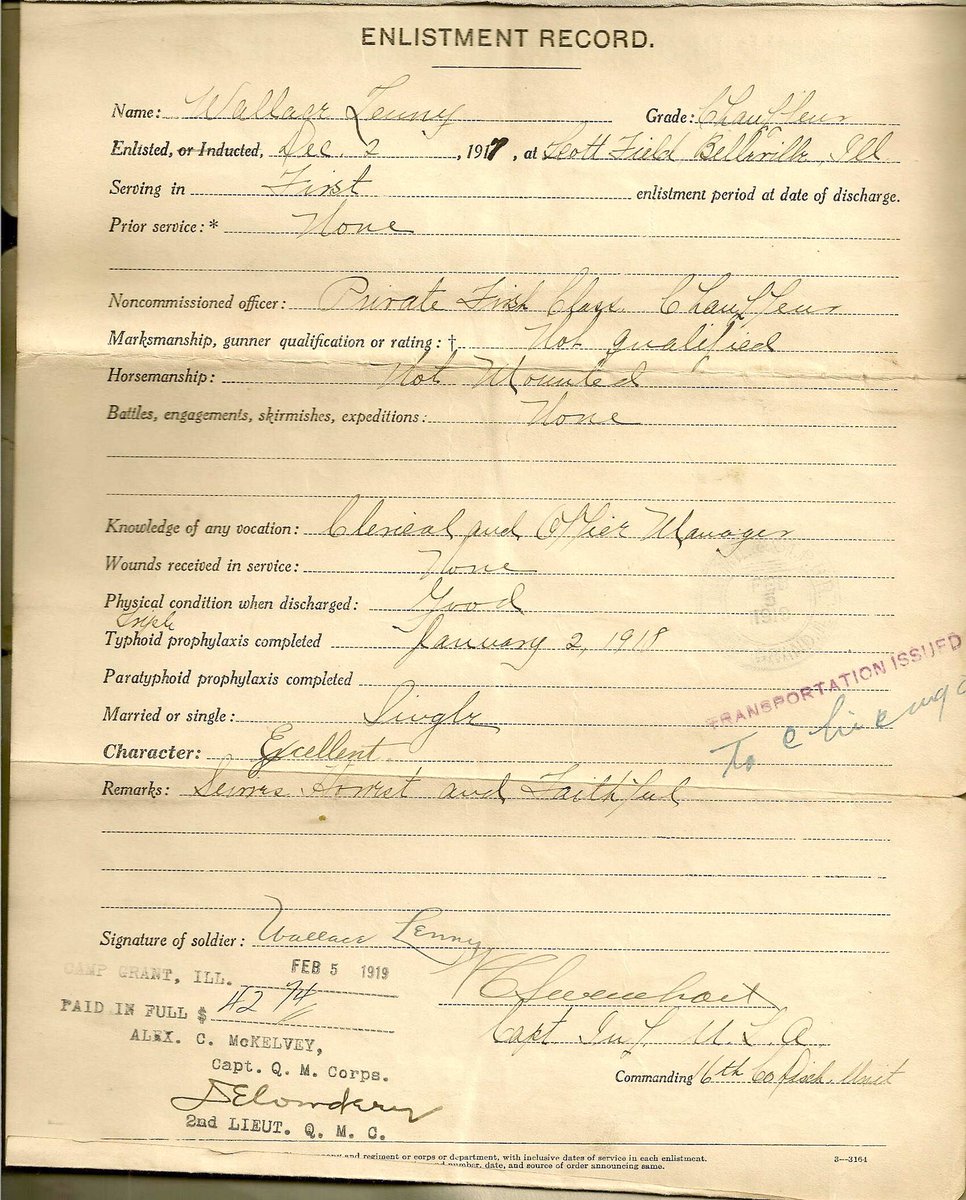 ENLISTMENT RECORD.
Name: Wallace Lenny Grade: Chauffeur
Enlisted, or Inducted, Dec. 2, 1917, at Scott Field Belleville, Ill
Serving in First enlistment period at date of discharge.
Prior service:* None
Noncommissioned officer: Private First Class Chauffeur
Marksmanship, gunner qualification or rating: † Not Qualified
Horsemanship: Not Mounted
Battles, engagements, skirmishes, expeditions: None
Knowledge of any vocation: Clerical and Office Manager
Wounds received in service: None
Physical condition when discharged: Good
Triple
Typhoid prophylaxis completed January 2, 1918
Paratyphoid prophylaxis completed
TRANSPORTATION ISSUED
Married or single: Single
To Chicago
Character: Excellent
Remarks: Service Honest and Faithful
Signature of soldier: Wallace Lenny
CAMP GRANT, ILL. FEB 5 1919
PAID IN FULL $ 42 74
ALEX. C. McKELVEY,
Capt. Q. M. Corps.
2nd LIEUT. Q. M. C.
Capt Inf. U.S.A.
Commanding 16th Co Disch. Unit
and regiment or corps or department, with inclusive dates of service in each enlistment.
number, date, and source of order announcing same.
3—3164